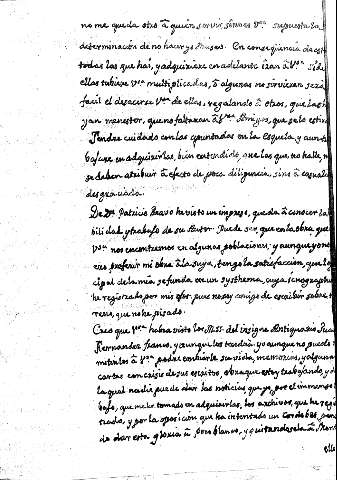 no me queda otro â quien servir, sino â V.ᵐ supuesta la
determinacion de no hacer yo Museo. En conseqüencia de esto
todas las que haí, y adquiriere en adelante irán â V.ᵐ Si de
ellas tubiere V.ᵐ multiplicadas, ô algunas no sirvieran será
facil el desacerse V.ᵐ de ellas, regalando â otros, que las ha-
yan menester, que no faltarán â V.ᵐ Amigos, que se lo estimen
Tendre cuidado con las apuntadas en la Esquela, y aun tra-
bajare en adquirirlas, bien entendido que las que no halle, no
se deben atribuir â efecto de poca diligencia, sino â casual
desgracia.
De D.ⁿ Patricio Bravo he visto un impreso, que da â conocer la ha-
bilidad y trabajo de su Autor. Puede ser, que en la obra que
V.ᵐ nos encontremos en algunas poblaciones; y aunque yo no
es proferir mi obra â la suya, tengo la satisfaccion, que lo prin-
cipal de la mia se funda en un systhema, cuya
he registrado por mis ojos. pues no soy amigo de escribir sobre ter-
renos, que no he pisado.
Creo que V.ᵐ habra visto los Mss. del insigne Antiquario Juan
Fernandez Franco, y aunque los tendrá y aunque no puedo re-
mitirlos â V.ᵐ podre embiarle su vida, memorias, y algunas
cartas con crisis de sus escritos, obra que estoy trabajando, y de
la qual nadie puede dar las noticias que yo, por el inmenso tra-
bajo, que me he tomado en adquirirlas, los archivos, que he regis-
trado, y por la oposicion que ha intentado un Cordobes, pensan-
do dar esta gloria â Pozo blanco, y quitandosela â Mont